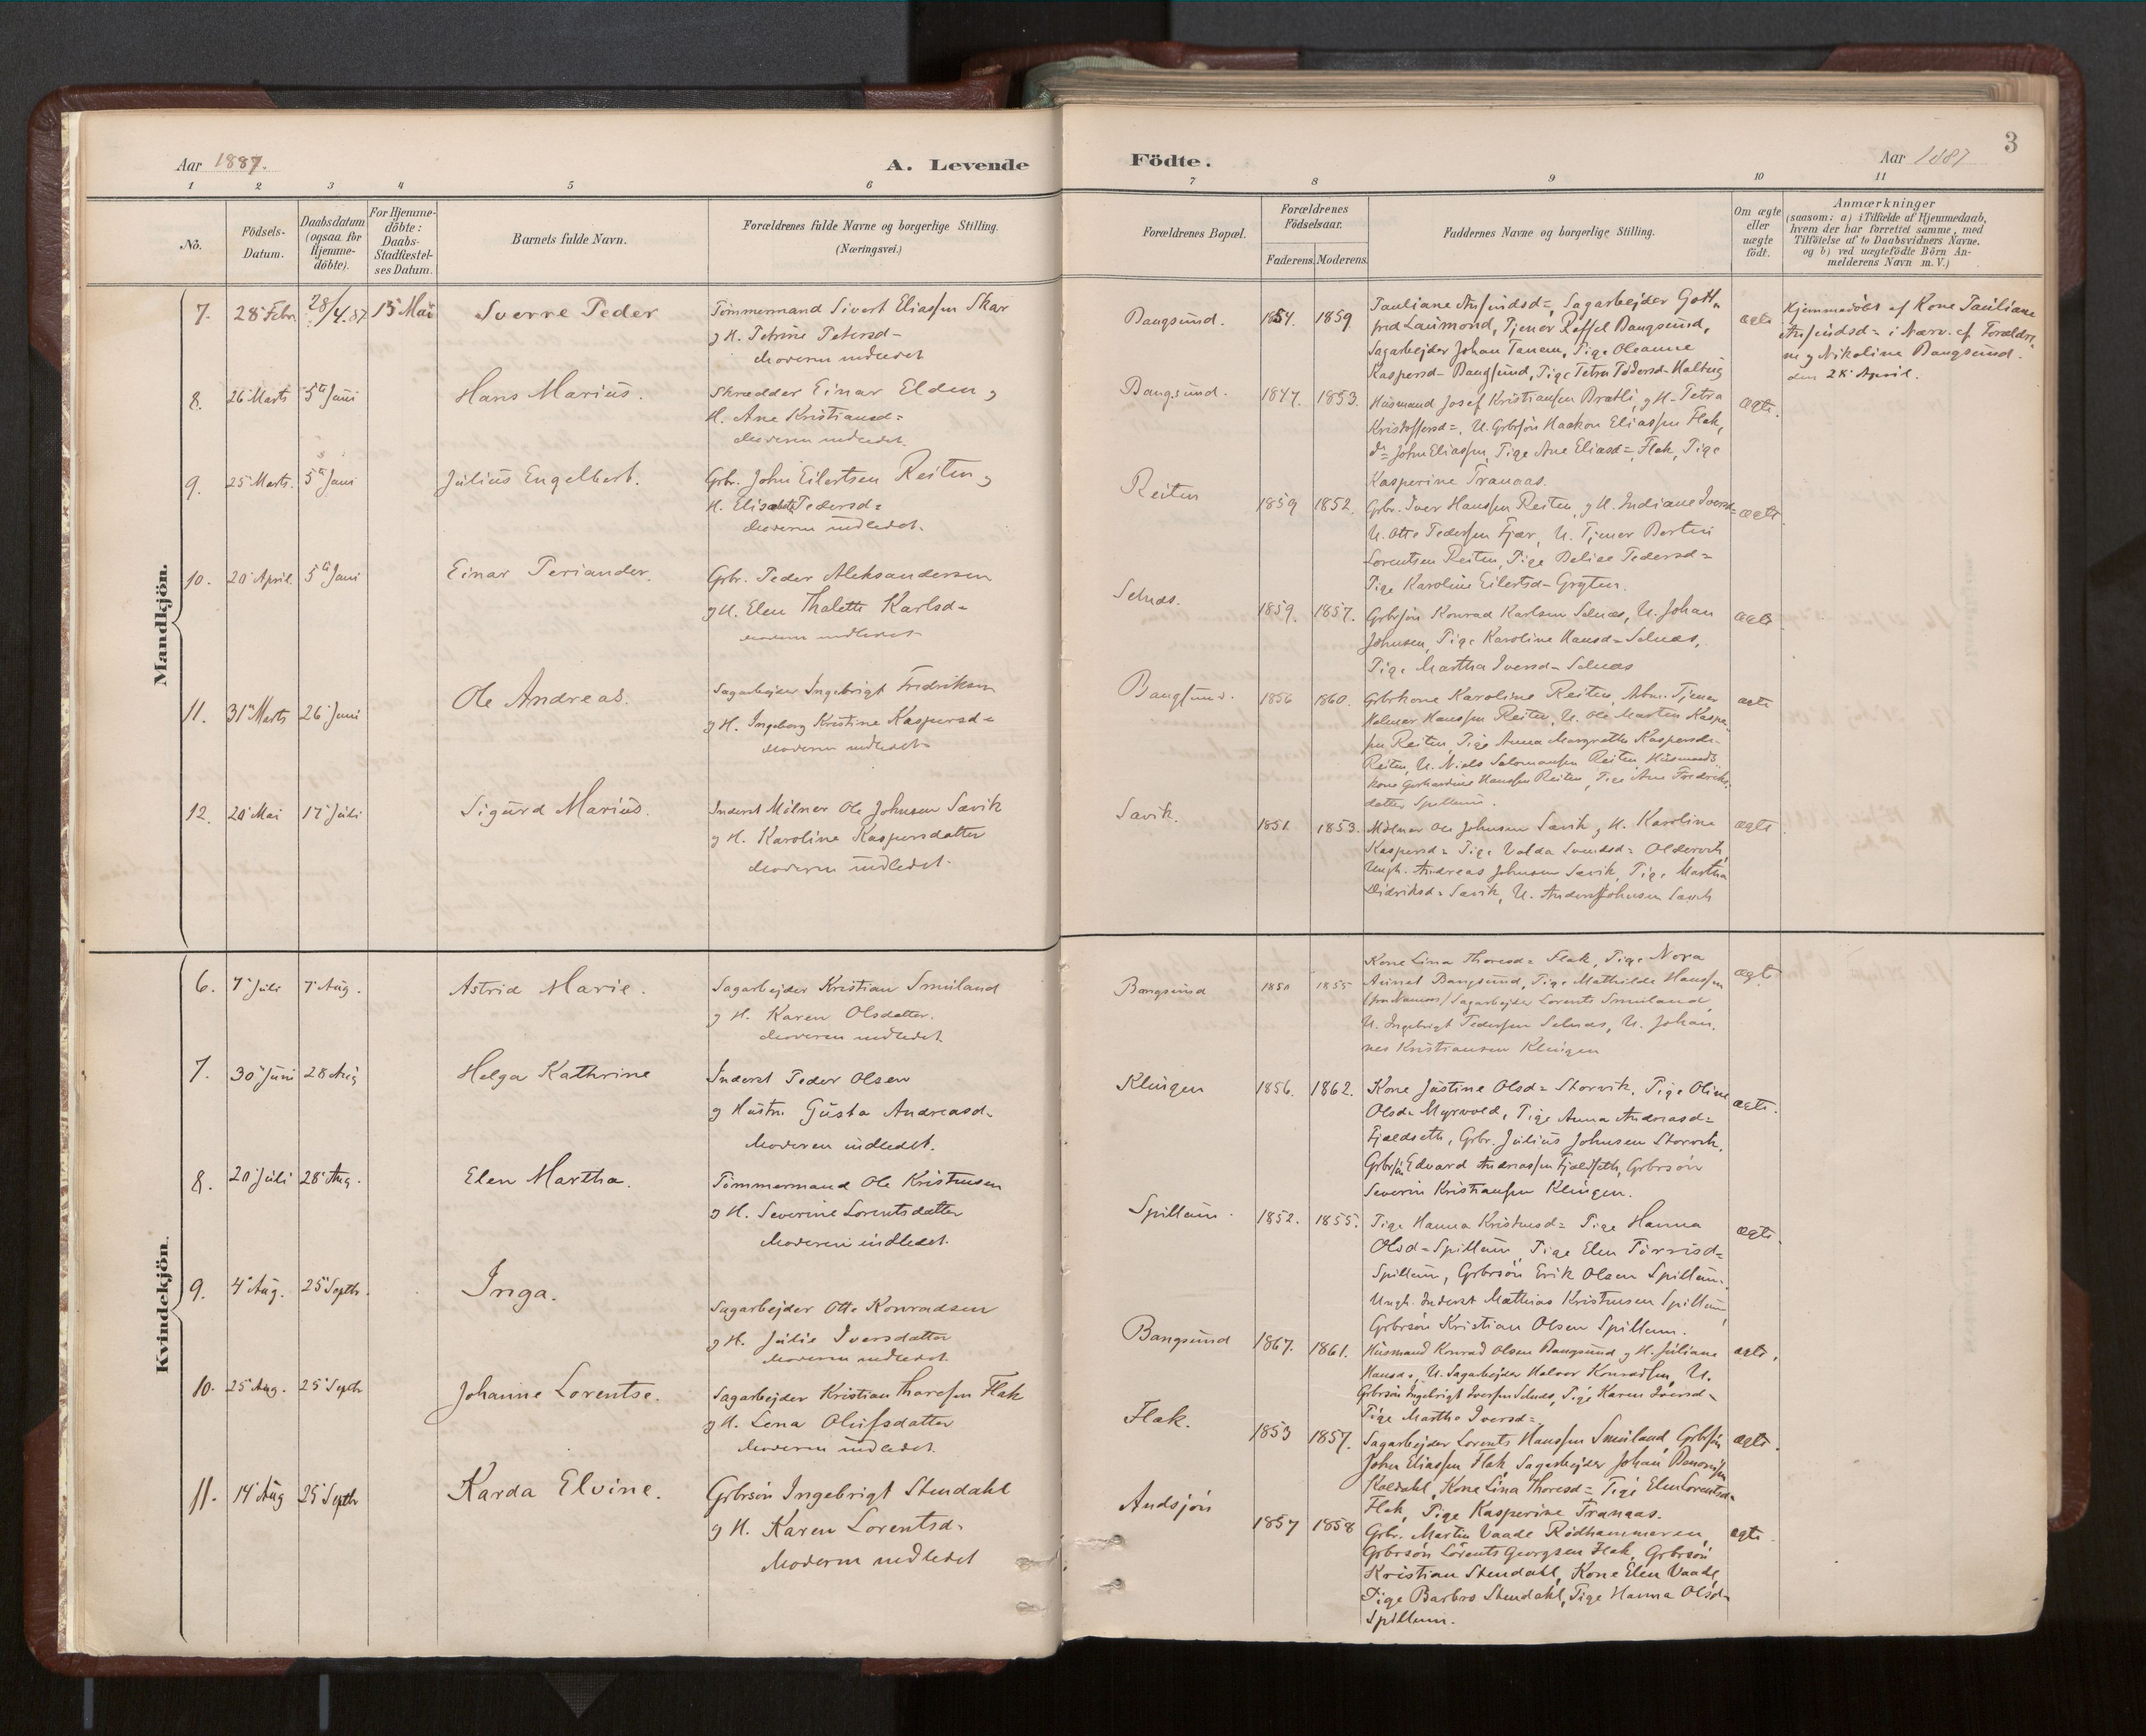 3
Aar 1887.
A. Levende
Födte.
Aar 1887
1 2 3 4 5 6 7 8 9 10 11
No.
Födsels-
Datum.
Daabsdatum
(ogsaa for
Hjemme-
döbte).
For Hjemme-
döbte:
Daabs-
Stadfæstel-
ses Datum.
Barnets fulde Navn.
Forældrenes fulde Navne og borgerlige Stilling.
(Næringsvei.)
Forældrenes Bopæl.
Forældrenes
Födselsaar.
Faderens. Moderens.
Faddernes Navne og borgerlige Stilling.
Om ægte
eller
uægte
födt.
Anmærkninger
(saasom: a) i Tilfælde af Hjemmedaab,
hvem der har forrettet samme, med
Tilföielse af to Daabsvidners Navne.
og b) ved uægtefödte Börn An-
melderens Navn m. V.)
Mandkjön.
7. 28 Febr 28/4.87 15 Mai Sverre Peder
Tömmermand Sivert Eliassen Skar
og H. Petrine Petersd-
Moderen indledet
Bangsund. 1854. 1859
Pauliane Arnsindsd=, Sagarbejder Gott-
fred Laumond, Tjener Bangsund,
Sagarbejder Johan Tanem, Pige Oleanne
Kaspersd- Bangsund, Pige Petra Pedersd-
ægte
Hjemmedöbt af Kone Pauliane
Arnsindsd= i Nærv. af Forældre
ne og Nikoline Bangsund.
den 28 April.
8. 26 Marts 5te Juni Hans Marius.
Skrædder Einar Elden og
H. Ane Kristiansd=
Moderen indledet.
Bangsund. 1847. 1853.
Husmand Josef Kristiansen Bratli og H. Petra
Kristoffersd=, U. Grbrsön Haakon Eliassen Flak,
do John Eliassen, Pige Ane Eliasd= Flak, Pige
Kasperine Tranaas.
ægte.
9. 25 Marts. 5te Juni Julius Engelbert.
Grbr. John Eilertsen Reiten og
H. Elisabeth Pedersd=
Moderen indledet.
Reiten 1859 1852.
Grbr. Iver Hanssen Reiten, og H. Indiane Iversd=
U. Otto Pedersen Fjær, U. Tjener Bertin
Lorentsen Reiten, Pige Pedersd=
Pige Karoline Eilertsd- Gryten.
ægte.
10. 20 April. 5te Juni Einar Periander.
Grbr. Peder Aleksandersen
og H. Elen Thalette Karlsd-
Moderen indledet
Selnæs. 1859. 1857.
Grbrsön Konrad Karlsen Selnæs, U. Johan
Johnsen, Pige Karoline Hansd= Selnæs,
Pige Martha Iversd- Selnæs
ægte.
11. 31 Marts 26 Juni Ole Andreas.
Sagarbejder Ingebrigt Fredriksen
og H. Ingeborg Kristine Kaspersd-
Moderen indledet-
Bangsund. 1856 1860.
Grbrkone Karoline Reiten, Tjener
Halmer Hanssen Reiten, U. Ole Martin Kasper
sen Reiten, Pige Anna Margrethe Kaspersd-
Reiten, U. Niels Salomonsen Reiten, Husmands
kone Hanssen Reiten, Pige Ane Fredriks-
datter Spillum.
ægte
12. 20 Mai 17 Juli Sigurd Marius.
Inderst Mölner Ole Johnsen Savik
og H. Karoline Kaspersdatter
Moderen indledet.
Savik. 1851. 1853.
Mölner Ole Johnsen Savik og H. Karoline
Kaspersd= Pige Valda Svendsd=
Ungk. Andreas Johnsen Savik, Pige Martha
Didriksd= Savik, U. Anders Johnsen Savik
ægte
Kvindekjön.
6. 7 Juli 7 Aug. Astrid Marie.
Sagarbejder Kristian Smuland
og H. Karen Olsdatter.
Moderen indledet.
Bangsund 1851 1855
Kone Lina Thoresd= Flak, Pige Nora
Bangsund, Pige Mathilde Hanssen
(fra Namsos) Sagarbejder Lorents Smuland
U. Ingebrigt Pedersen Selnæs, U. Johan-
nes Kristiansen Klingen
ægte
7. 30 Juni 28 Aug Helga Kathrine
Inderst Peder Olsen
og Hustru Gusta Andreasd-
Moderen indledet.
Klingen 1856. 1862.
Kone Justine Olsd= Storvik, Pige Oline
Olsd= Myrvold, Pige Anna Andreasd=
Fjeldseth, Grbr. Julius Johnsen Storvik,
Grbrsön Edvard Andreassen Fjeldseth, Grbrsön
Severin Kristiansen Klingen.
ægte.
8. 20 Juli 28 Aug. Elen Martha.
Tömmermand Ole Kristensen
og H. Severine Lorentsdatter
Moderen indledet.
Spillum. 1852. 1855.
Pige Hanna Kristensd= Pige Hanna
Olsd= Spillum, Pige Elen Törrisd=
Spillum, Grbrsön Erik Olsen Spillum.
Ungk. Inderst Mathias Kristensen Spillum,
Grbrsön Kristian Olsen Spillum.
ægte.
9. 4 Aug. 25 Septbr. Inga.
Sagarbejder Otto Konradsen
og H. Julie Iversdatter
Moderen indledet.
Bangsund 1867. 1861.
Husmand Konrad Olsen Bangsund og H. Juliane
Hansd=, U. Sagarbejder Halvor Konradsen, U.
Grbrsön Ingebrigt Iversen Selnæs, Pige Karen Iversd-
Pige Martha Iversd=.
ægte.
10. 25 Aug. 25 Septbr Johanne Lorentse.
Sagarbejder Kristian Thoresen Flak
og H. Lena Olufsdatter
Moderen indledet.
Flak. 1853 1857.
Sagarbejder Lorents Hanssen Smuland, Grbrsön
John Eliassen Flak Sagarbejder Johan
Koldahl, Kone Lina Thoresd= Pige Elen Lorentsd=
Flak, Pige Kasperine Tranaas.
ægte.
11. 14 Aug 25 Septbr Karda Elvine.
Grbrsön Ingebrigt Stendahl
og H. Karen Lorentsd.
Moderen indledet
Andsjön 1857 1858
Grbr. Martin Vaade Rödhammeren,
Grbrsön Lorents Georgsen Flak, Grbrsön
Kristian Stendahl, Kone Elen Vaade,
Pige Barbro Stendahl, Pige Hanna Olsd=
Spillum.
ægte.